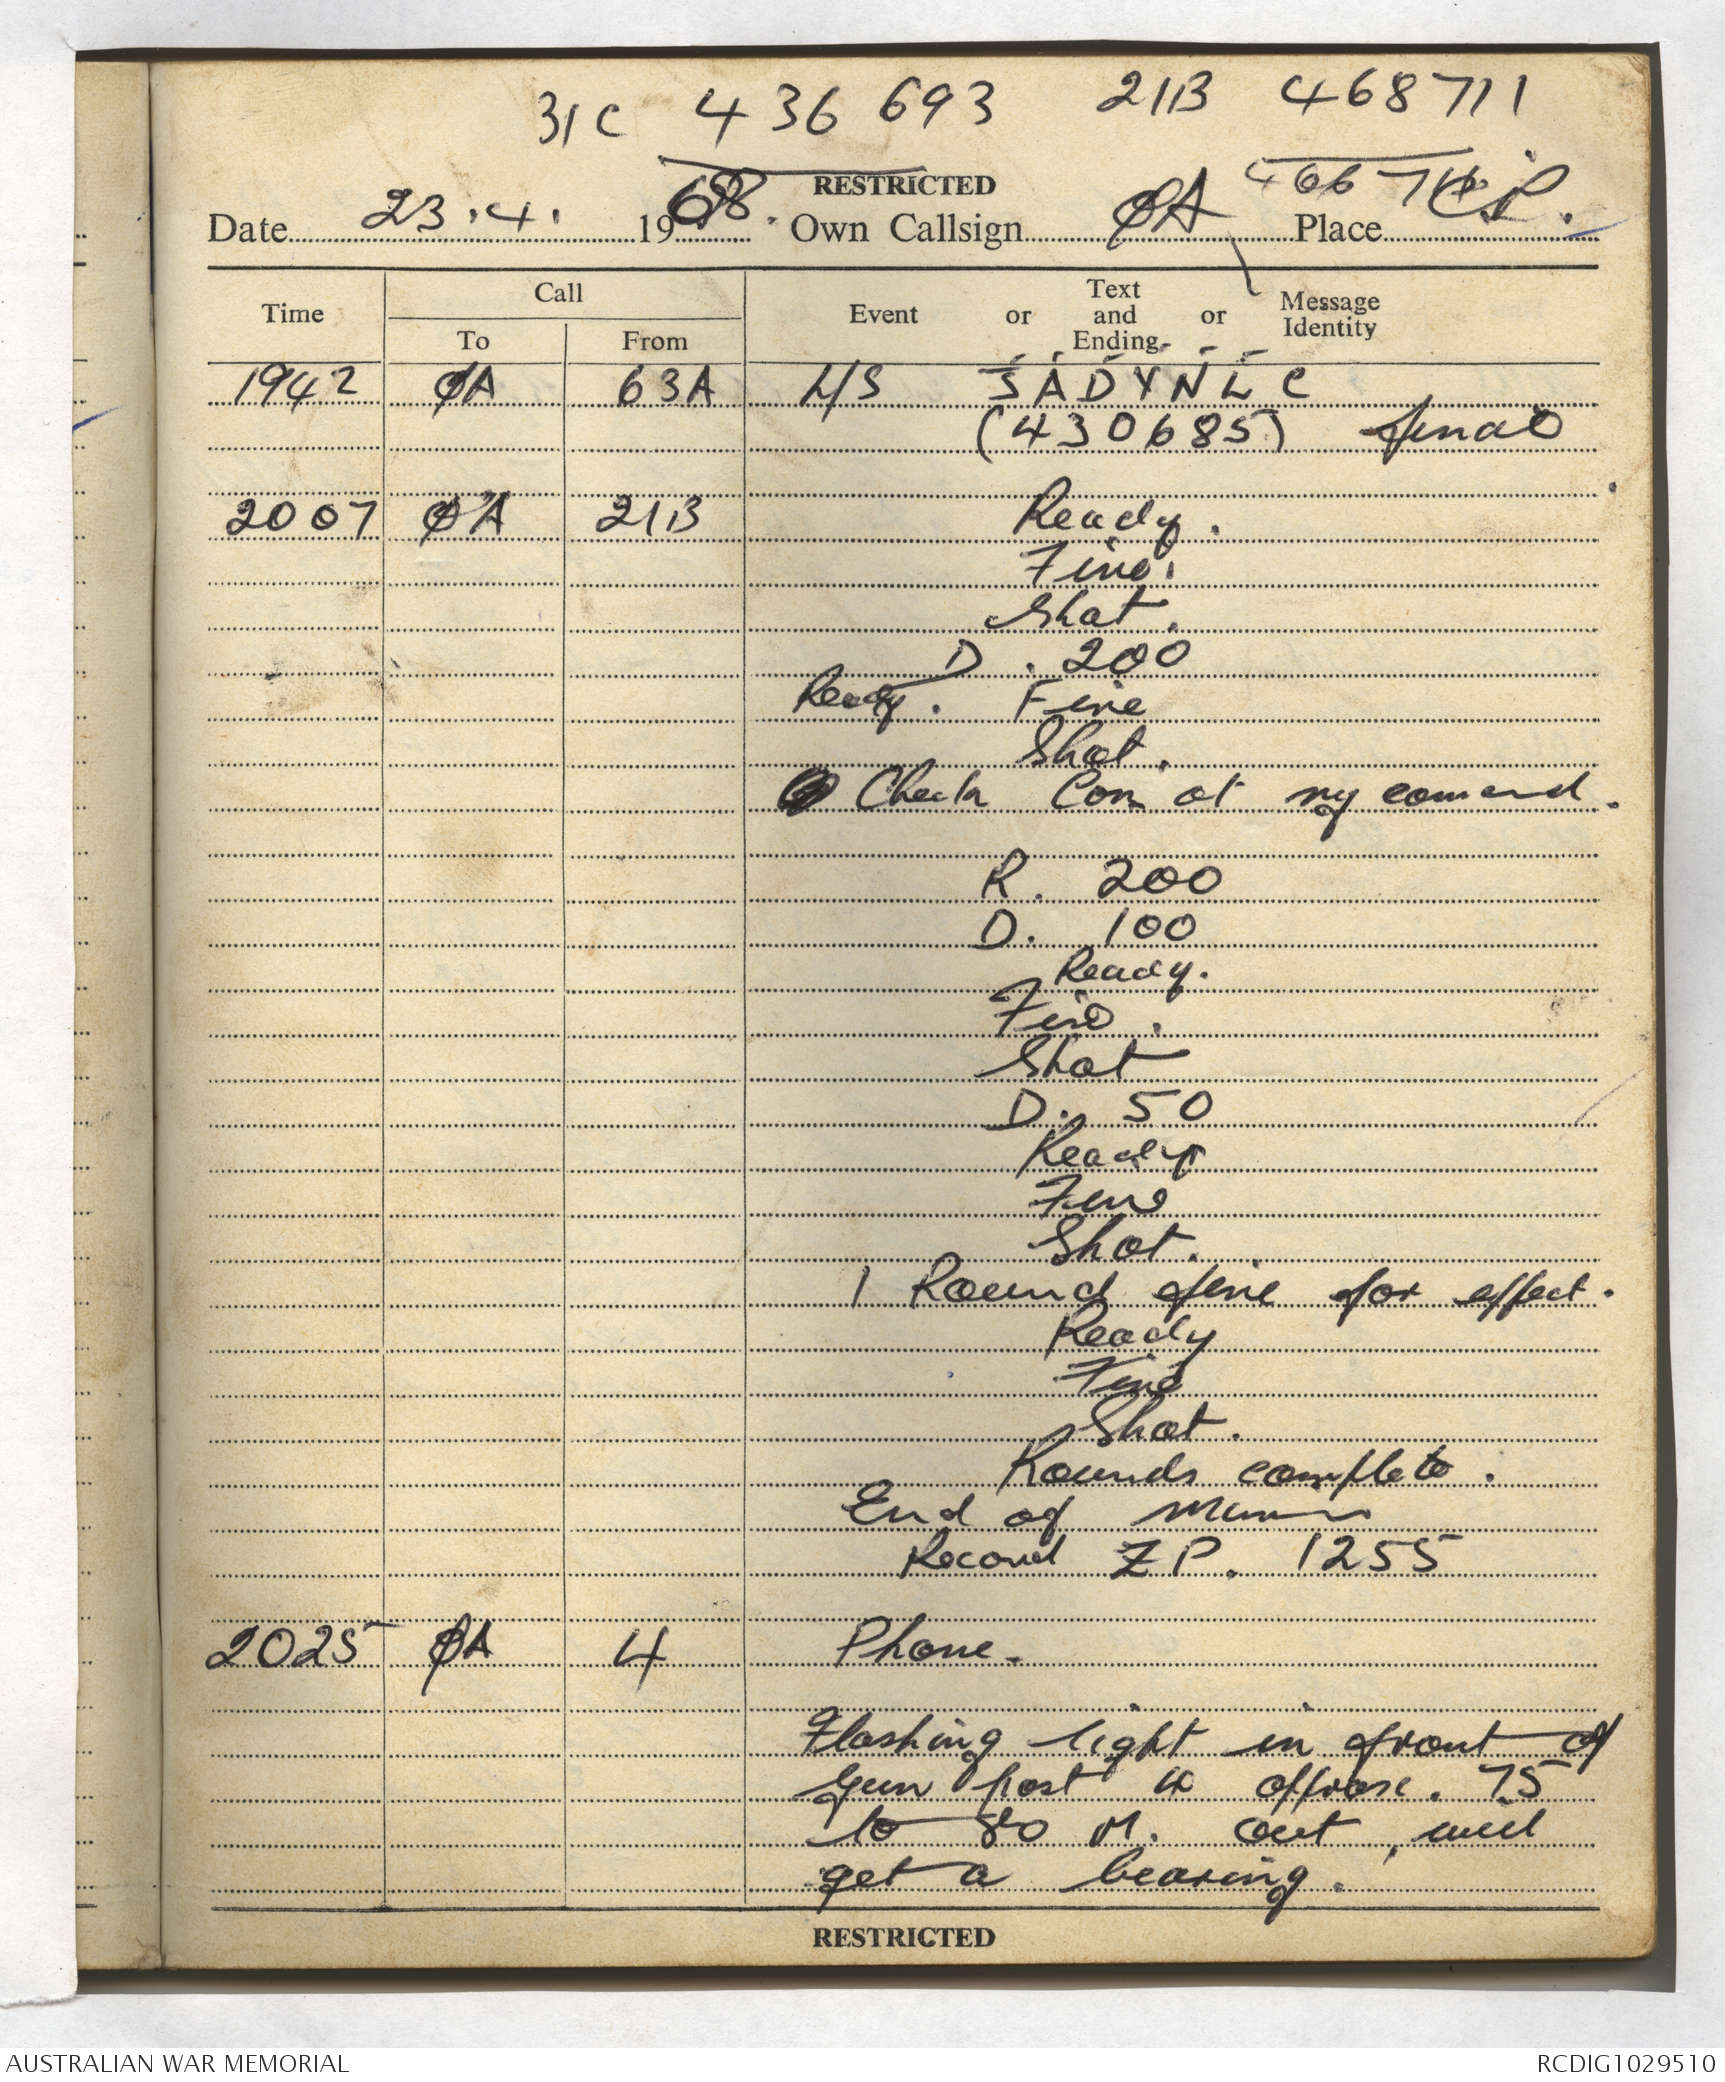 31C 436 693 21B 468711
RESTRICTED 466 710
Date 23.4. 1968. Own Callsign ØA Place C.P.
Time Call Event or Text and Ending or Message Identity
To From
1942 ØA 63A L/S SADYNLC
(430685) final
2007 ØA 21B Ready.
Fire.
Shot.
D. 200
Ready. Fire
Shot.
Check Con at my comand.
R. 200
D. 100
Ready.
Fire.
Shot
D. 50
Ready
Fire
Shot.
1 Round fire for effect.
Ready
Fire
Shot.
Rounds complete.
End of
Record ZP. 1255
2025 ØA 4 Phone.
Flashing light in front of
Gun post 75
to 80 M. out, will
get a bearing.
RESTRICTED
AUSTRALIAN WAR MEMORIAL RCDIG1029510